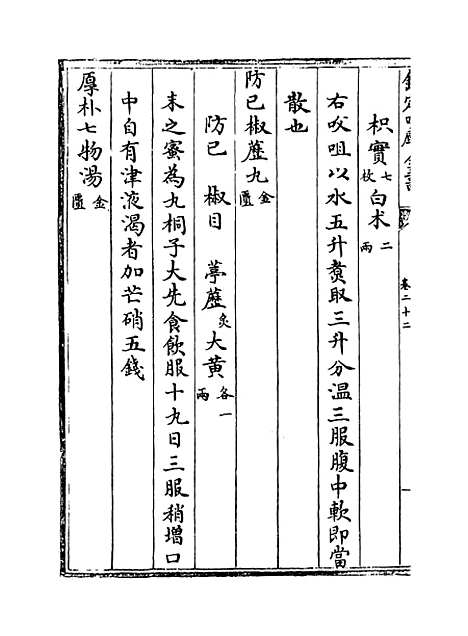 卷二十二
枳實七枚白术二兩
右㕮咀以水五升煑取三升分温三服腹中軟即當
散也
防已椒藶丸金匱
防已　椒目　葶藶炙大黄各一兩
末之蜜為丸桐子大先食飲服十丸日三服稍增口
中自有津液渴者加芒硝五錢
厚朴七物湯金匱